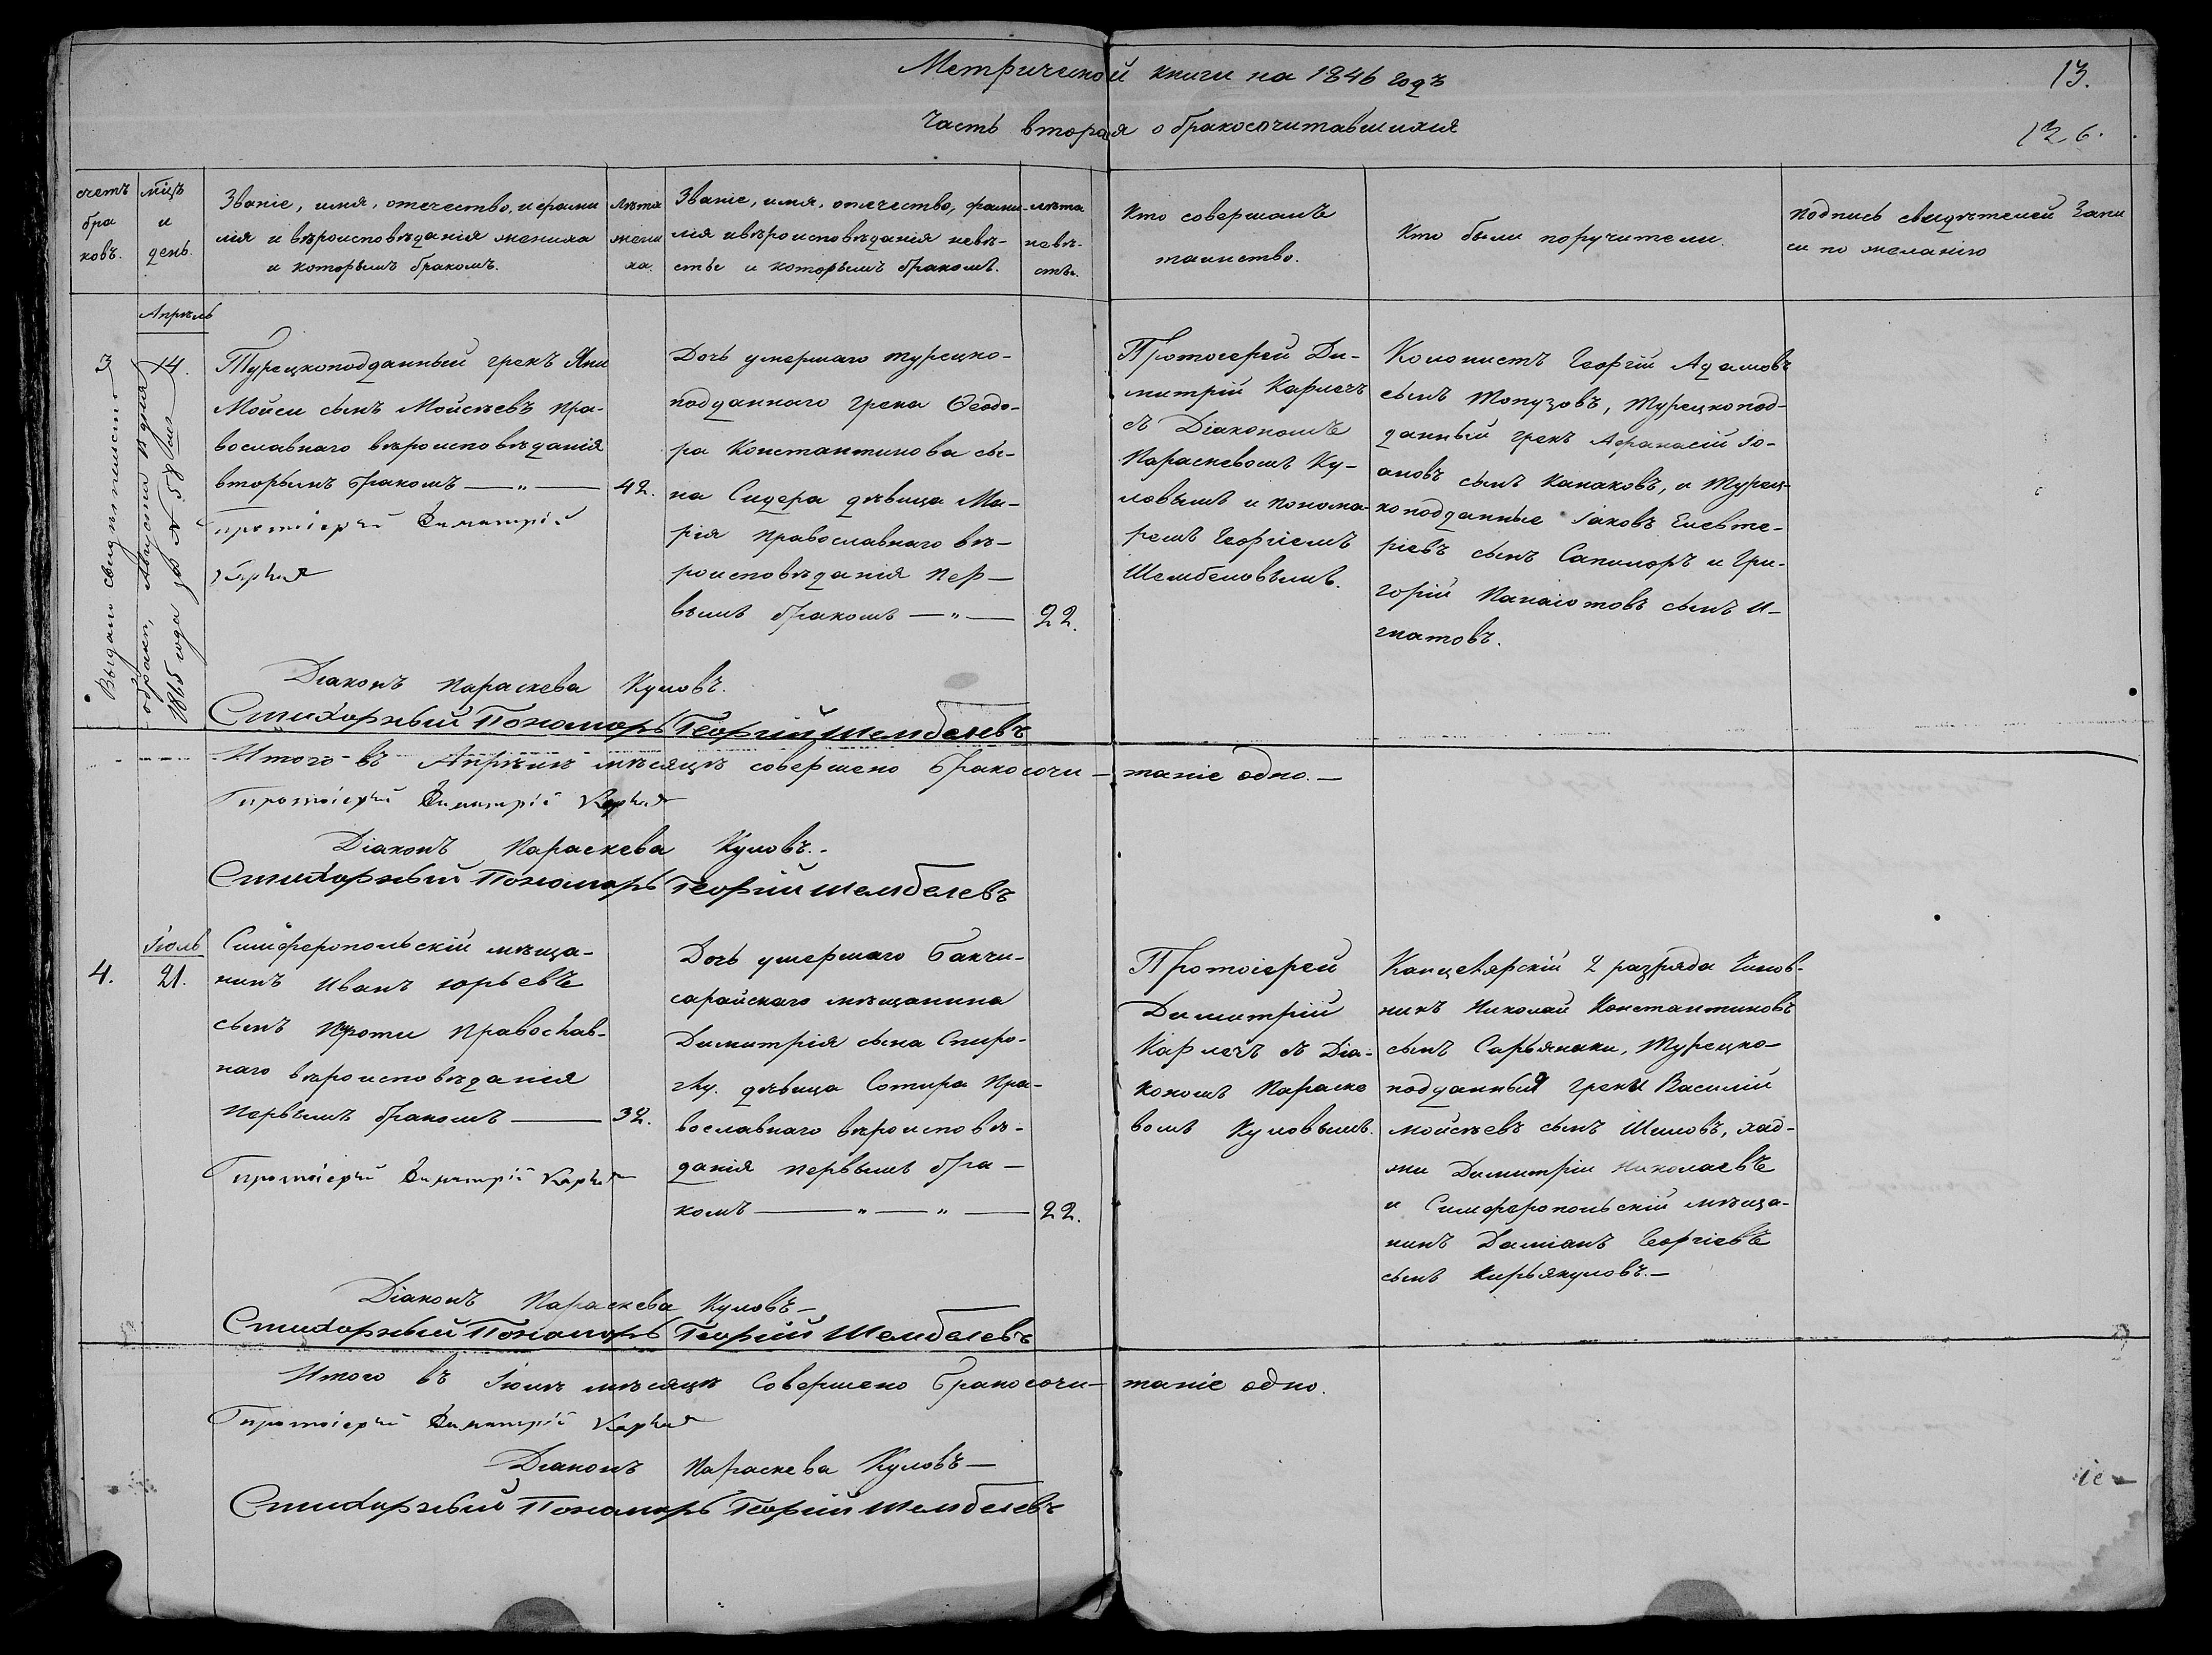 Метрической книги на 1846 годъ
13.
Часть вторая о бракосочитавшихся
126.
счетъ
бра
ковъ.
мѣцъ
и
день.
Званіе, имя, отечество, и фами
лія и вѣроисповѣданія жениха
и которымъ бракомъ.
Лѣта
жени
ха.
Званіе, имя, отечество, фами-
лія и вѣроисповѣданія невѣ-
сты и которымъ бракомъ.
лѣта
невѣ-
сты.
Кто совершалъ
таинство.
Кто были поручители.
подпись свидѣтелей Запи
си по желанію
Апрѣль
3
14.
Выдано свидѣтельст
о бракѣ, Августа
1865 года за № 58
Турецкоподданный грекъ Яни
Мойси сынъ Мойсѣевъ пра-
вославнаго вѣроисповѣданія
вторымъ бракомъ — „ —
42.
протоіерей Димитрій
Дочь умершаго турецко-
подданнаго грека Ѳеодо-
ра Константинова сы-
на Сидера дѣвица Ма-
рія православнаго вѣ-
роисповѣданія пер-
вымъ бракомъ — „ —
22.
Протоіерей Ди-
митрій Карлечъ
съ Діакономъ
Параскевомъ Ку-
ловымъ и понома-
ремъ Георгіемъ
Шембеловымъ.
Колонистъ Георгій Адамовъ
сынъ Топузовъ, турецкопод-
данный грекъ Афанасій Іо-
ановъ сынъ Канаковъ, и турец-
коподданные Іаковъ Елевте-
ріевъ сынъ Сапилоръ и Гри-
горій Панаіотовъ сынъ И-
гнатовъ.
Діаконъ Параскева Куловъ.
Стихорный Пономарь Георгій Шембелевъ
Итого въ Апрѣлѣ мѣсяцѣ совершено бракосочи-
таніе одно. —
Протоіерей Димитрій
Діаконъ Параскева Куловъ. -
Стихорный Пономарь Георгій Шембелевъ
Іюль
4.
21.
Симферопольскій мѣща-
нинъ Иванъ Юрьевъ
сынъ Проти православ-
наго вѣроисповѣданія
первымъ бракомъ —
32.
Протоіерей Димитрій
Дочь умершаго Бакчи-
сарайскаго мѣщанина
Димитрія сына Спиро-
глу. дѣвица Сотира пра-
вославнаго вѣроисповѣ-
данія первымъ бра-
комъ — „ — „ —
22.
Протоіерей
Димитрій
Карлечъ съ Діа-
кономъ Параске
вомъ Куловымъ.
Канцелярскій 2 разряда Чинов-
никъ Николай Константиновъ
сынъ Сарьяники, турецко-
подданный греки Василій
мойсѣевъ сынъ Шиловъ, хад-
жи Димитрій Николаевъ
и Симферопольскій мѣща-
нинъ Даміанъ Георгіевъ
сынъ Кирьякуловъ. —
Діаконъ Параскева Куловъ —
Стихорный Пономарь Георгій Шембелевъ
Итого въ Іюлѣ мѣсяцѣ совершено бракосочи-
таніе одно.
Протоіерей Димитрій
Діаконъ Параскева Куловъ —
Стихорный Пономарь Георгій Шембелевъ